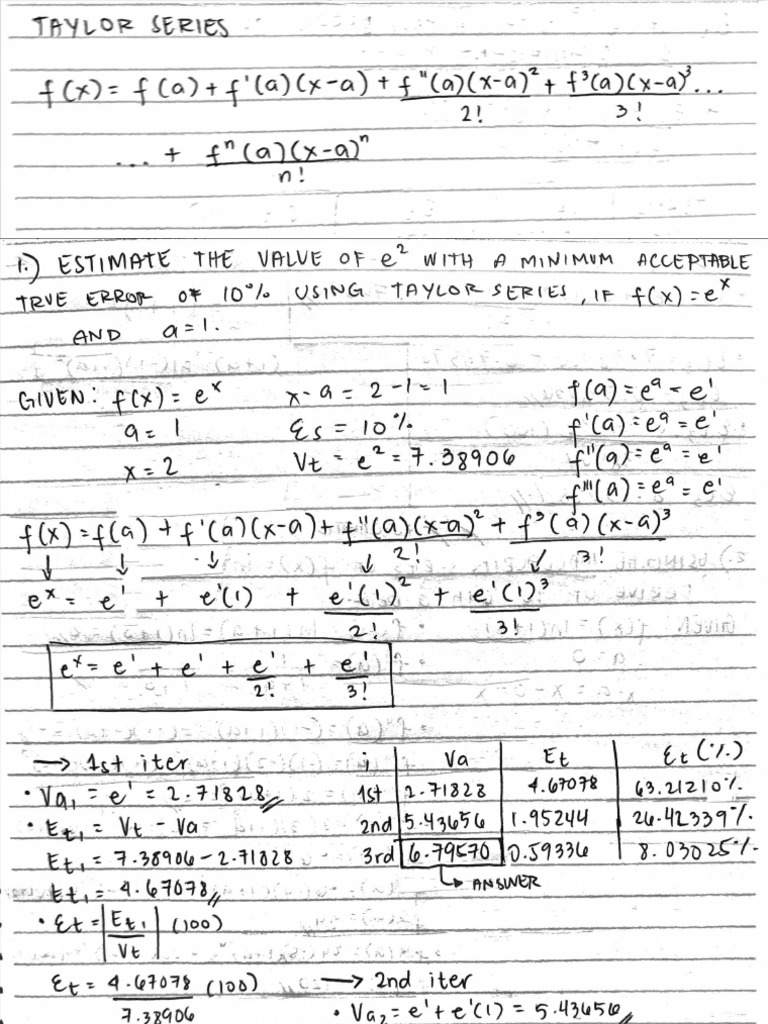 TAYLOR SERIES
f(x) = f(a) + f'(a)(x-a) + f"(a)(x-a)²/2! + f³(a)(x-a)³/3! ...
... + fⁿ(a)(x-a)ⁿ/n!
1.) ESTIMATE THE VALUE OF e² WITH A MINIMUM ACCEPTABLE
TRUE ERROR OF 10% USING TAYLOR SERIES, IF f(x) = eˣ
AND a=1.
GIVEN: f(x) = eˣ x-a = 2-1 = 1 f(a) = eᵃ = e'
a = 1 Ɛs = 10% f'(a) = eᵃ = e'
x = 2 Vt = e² = 7.38906 f"(a) = eᵃ = e'
f'''(a) = eᵃ = e'
f(x) = f(a) + f'(a)(x-a) + f"(a)(x-a)²/2! + f³(a)(x-a)³/3!
↓ ↓ ↓ ↓ ↓
eˣ = e' + e'(1) + e'(1)²/2! + e'(1)³/3!
eˣ = e' + e' + e'/2! + e'/3!
→ 1st iter
• Va₁ = e' = 2.71828
• Et₁ = Vt - Va
Et₁ = 7.38906 - 2.71828
Et₁ = 4.67078
• Ɛt = |Et₁/Vt| (100)
Ɛt = 4.67078/7.38906 (100)
i Va Et Ɛt (%)
1st 2.71828 4.67078 63.21210%
2nd 5.43656 1.95244 26.42339%
3rd 6.79570 0.59336 8.03025%
↳ ANSWER
→ 2nd iter
• Va₂ = e' + e'(1) = 5.43656